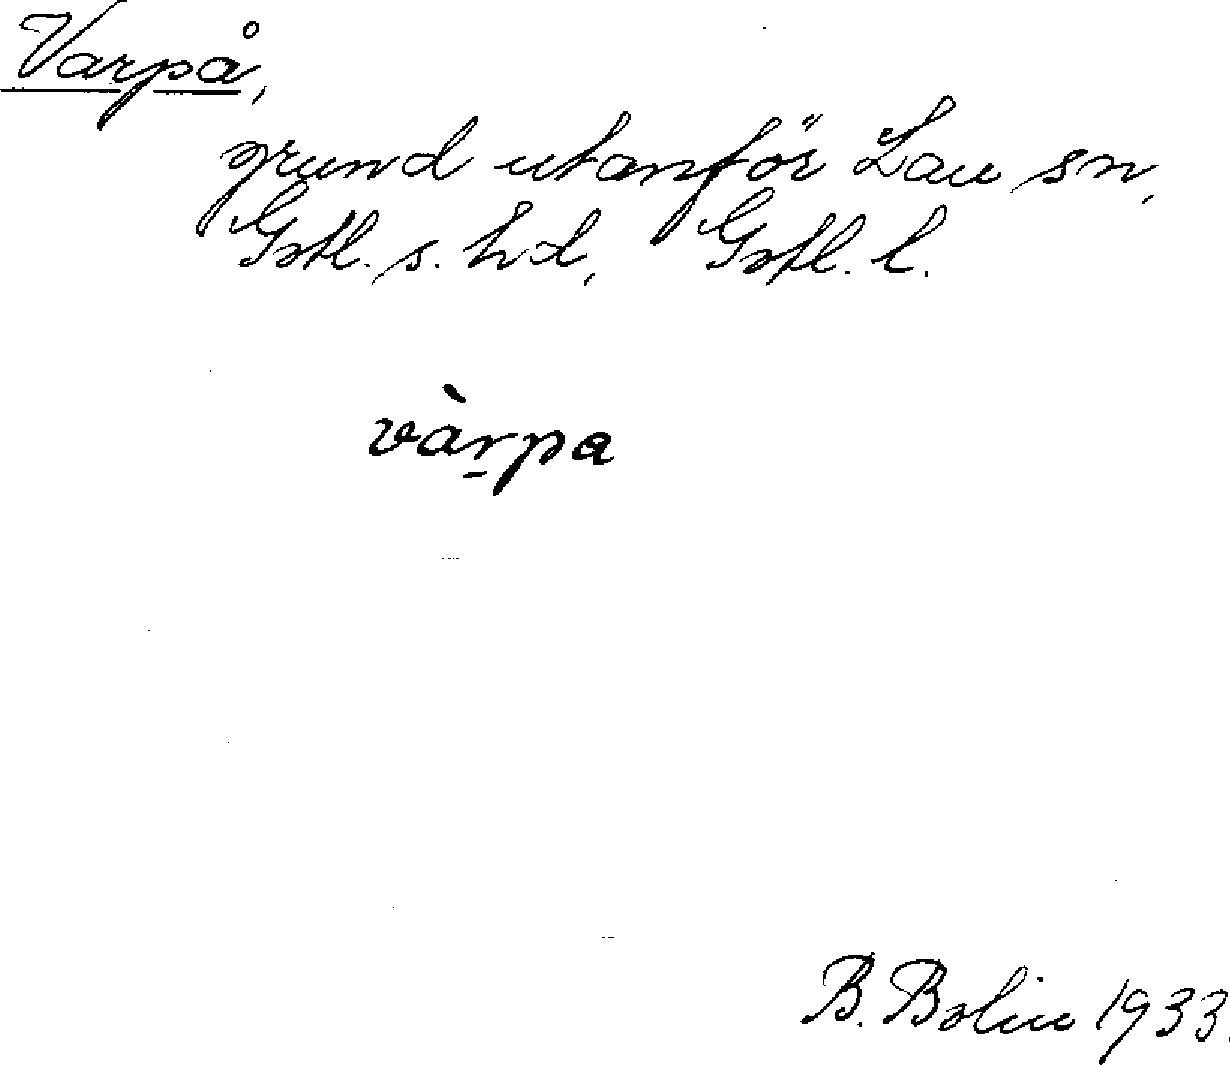 Varpå,
grund utanför Lau sn,
Gotl. s. hd, Gotl. l.
vàr̠pa
B. Bolin 1933.